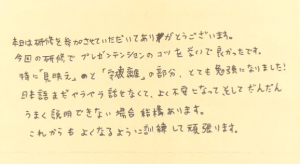 本日は研修を参加させていただいてありがとうございます。
今回の研修で プレゼンテンションのコツ を学いで良かったです。
特に「見映え」の と「守破離」の部分、とても勉強になりました!
日本語まだペラペラ話となくて、よく不安になって そして だんだん
うまく説明できない場合 結構あります。
これからも よくなるように訓練して頑張ります。